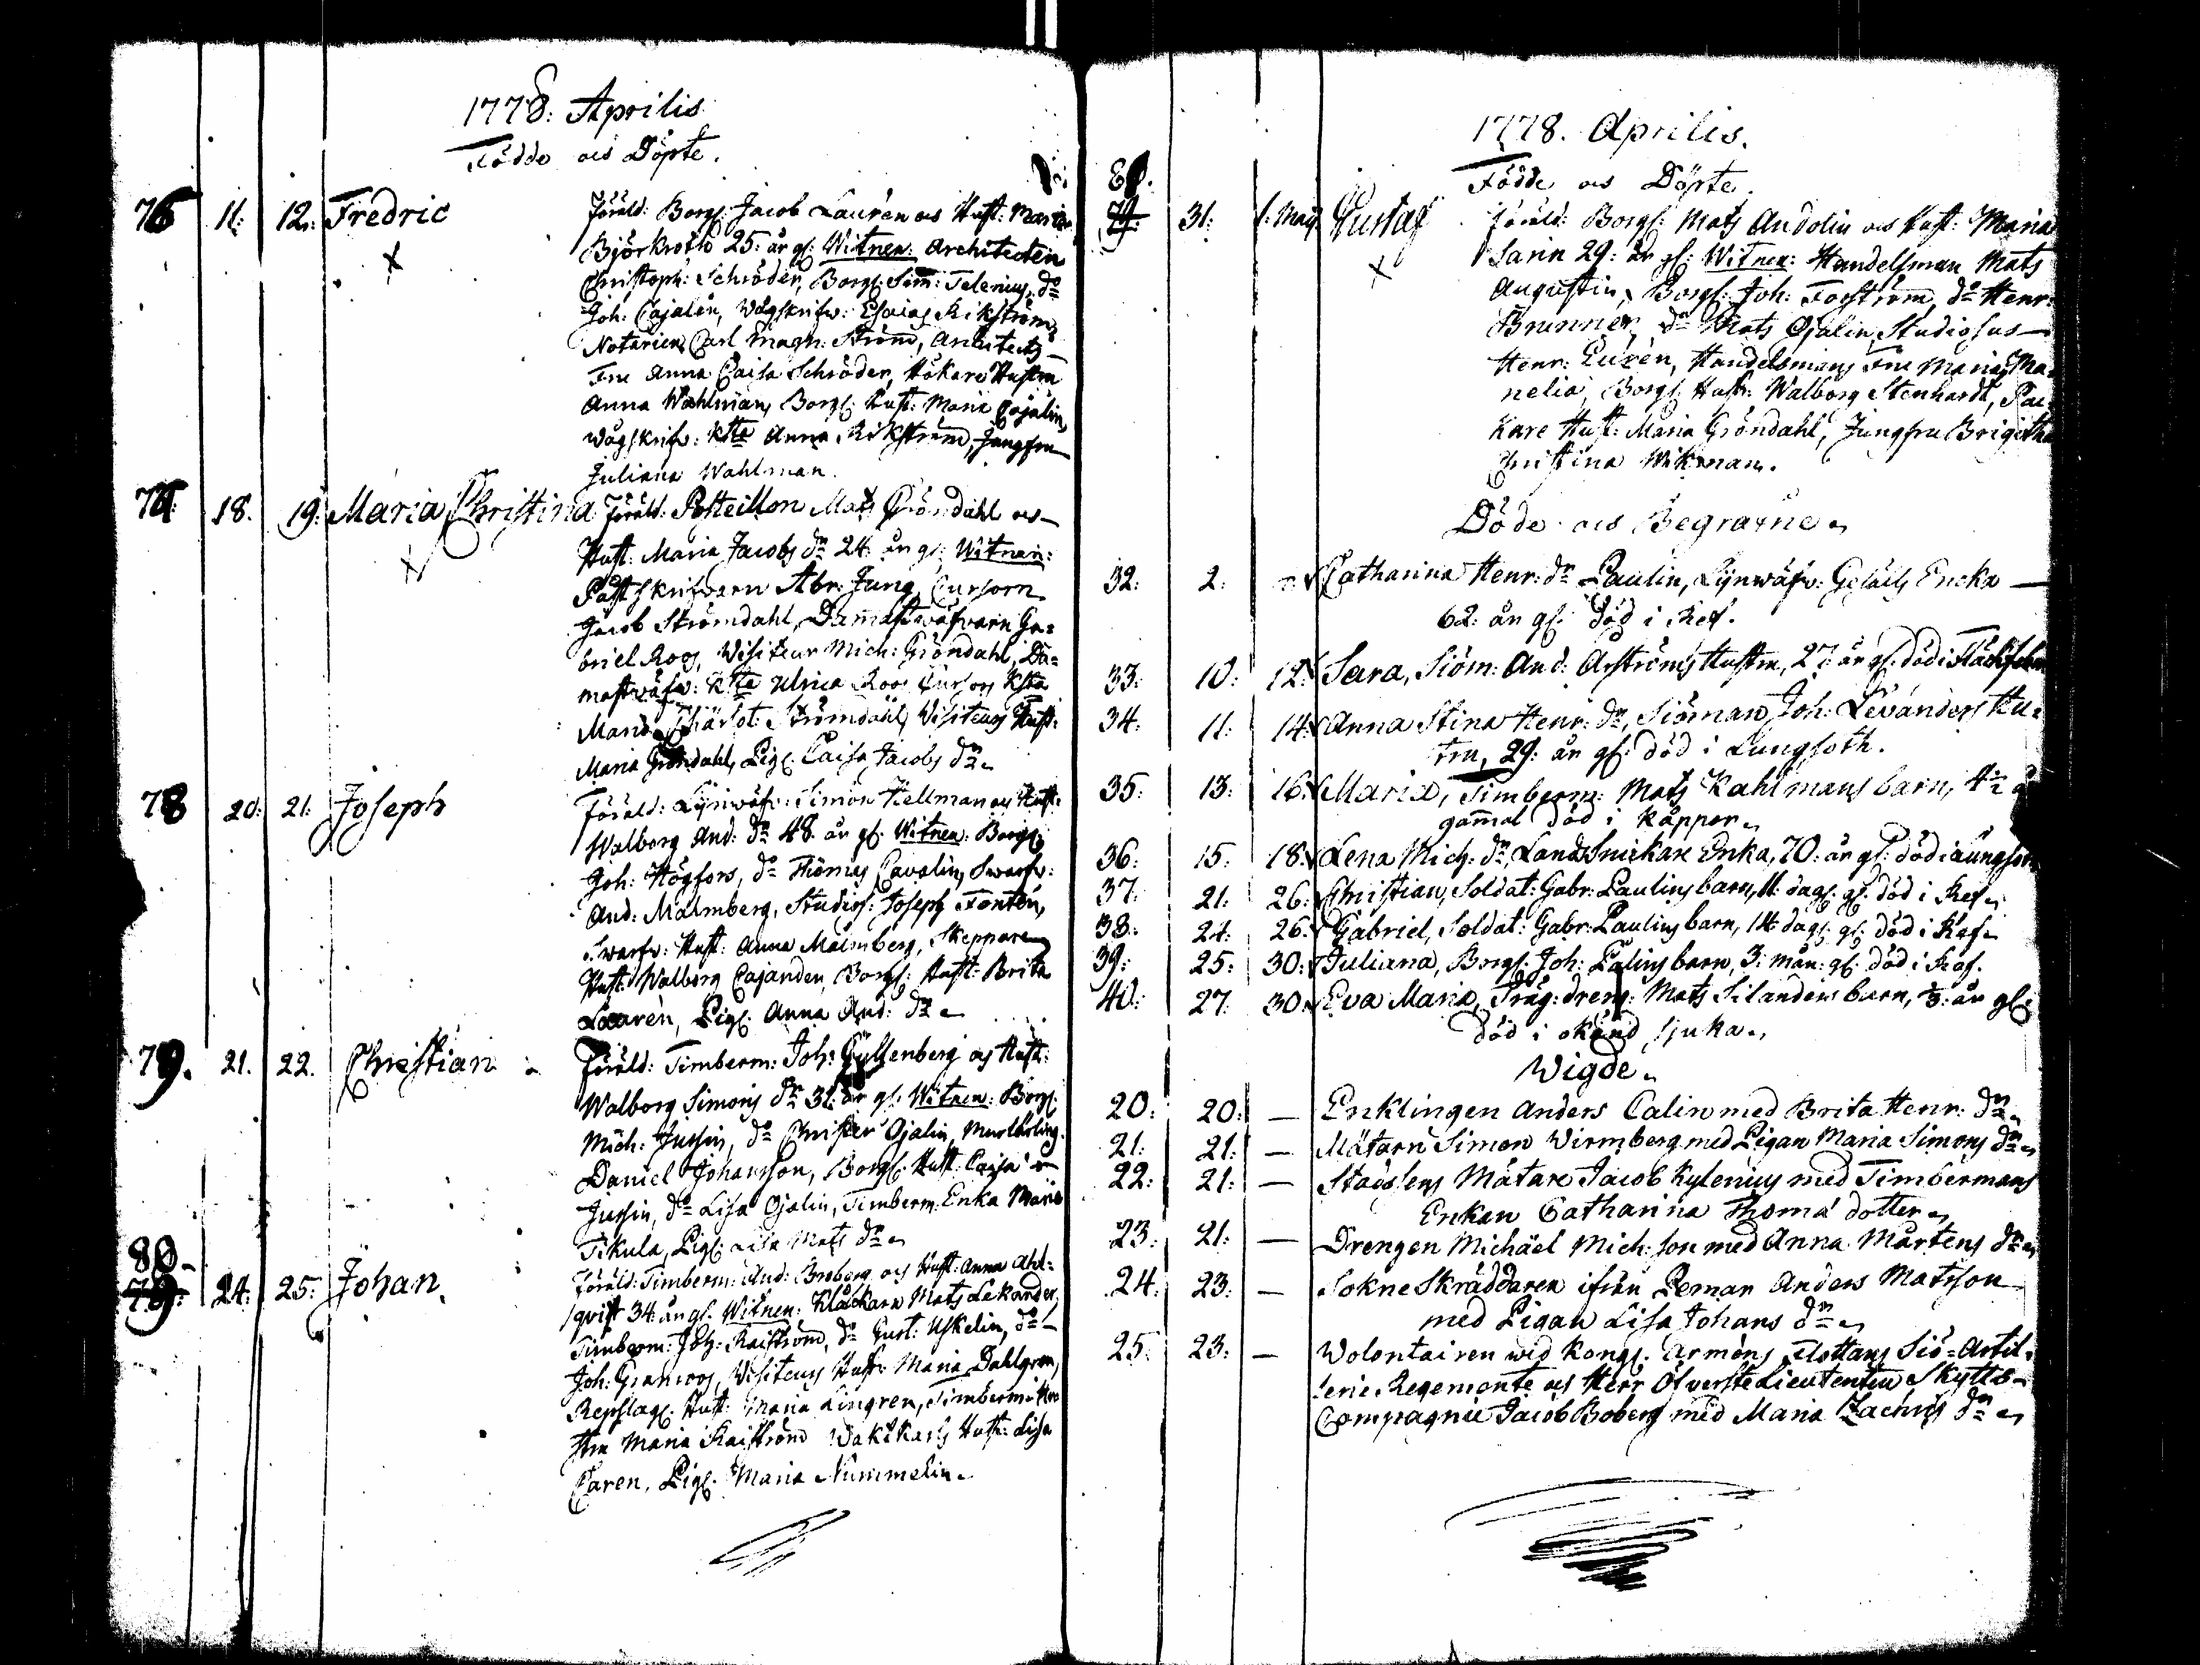 1778: Aprilis
Födde och Döpte.
76 11: 12: Fredric Föräld: Borg: Jacob Laurén och Hust: Maria
Björkroth 25: år gl: Witnen: Architecten
Christoph: Schröder, Borg: Sim: Telenius, do
Joh: Cajalén, Wågskrifw: Esaias Rikström,
Notarien Carl Magn: Ström, Architects
Fru Anna Caisa Schröder, Hökare Hustru
Anna Wahlman, Borg: Hust: Maria Cajalin,
Wågskrifw: K:sta Anna Rikström, Jungfru
Juliana Wahlman.
77: 18. 19: Maria Christina Föräld: Posteillon Mats Gröndahl och
Hust: Maria Jacobs dr 24: år gl: Witnen:
Postskrifvarn Abr: Jung, Cursorn
Jacob Strömdahl, Damastwäfvarn Ga=
briel Roos, Visiteur Mich: Gröndahl, Da=
mastwäfw: K:sta Ulrica Roos Cursors K:sta
Maria Charlot: Strömdahl, Visiteurs Hust:
Maria Gröndahl, Pig: Caisa Jacobs dr
78 20: 21: Joseph Föräld: Lijnwäfw: Simon Kellman och Hust:
Walborg And: dr 48. år gl. Witnen: Borg:
Joh: Högfors, do Thomas Cavalin, Swarfw:
And: Malmberg, Studios: Joseph Fontén,
Swarfw: Hust: Anna Malmberg, Skeppare
Hust: Walborg Cajander, Borg: Hust: Brita
Laurén, Pig: Anna And: dr
79. 21. 22. Christian Föräld: Timberm: Joh: Gyllenberg och Hust:
Walborg Simons dr 31: år gl. Witnen: Borg:
Mich: Jussin, do Christer Ojalin, Murlärling
Daniel Johansson, Borg: Hust: Caisa
Jussin, do Lisa Ojalin, Timberm: Enka Maria
Tikula, Pig: Lisa Mats dr
80.
79: 24: 25: Johan Föräld: Timberm: And: Broberg och Hust: Anna Ahl=
qvist 34: år gl. Witnen: Klåckarn Mats Lekander,
Timberm: Joh: Raiström, do Gust: Uskelin, do
Joh: Granroos, Visiteurs Hust: Maria Dahlgren,
Repslag: Hust: Maria Lingren, Timberm: Hu
stru Maria Raiström Wäktkarls Hust: Lisa
Caren, Pig: Maria Nummelin.
1778. Aprilis.
Födde och Döpte.
81.
79: 31: 1. Maij Gustaf Föräld: Borg: Mats Andolin och Hust: Maria
Sarin 29: år gl: Witnen: Handelsman Mats
Augustin, Borg: Joh: Forström, do Henr:
Brunner, do Mats Ojalin, Studiosus
Henr: Eurén, Handelsmans Fru Maria Ma=
nelia, Borg: Hust: Walborg Stenhardt, Pac=
kare Hust: Maria Gröndahl, Jungfru Brigitha
Christina Wikman.
Döde och Begrafne
32: 2: Catharina Henr: dr Paulin, Lijnwäfw: Gesälls Encka
62: år gl: död i Ref.
33: 10: 12: Sara, Siöm: And: Arströms Hustru, 27: år gl: död i Fläckfeber
34: 11: 14: Anna Stina Henr: dr, Siöman Joh: Levanders Hu=
tru, 29: år gl: död i Lungsoth.
35: 13: 16: Maria, Timberm: Mats Kahlmans barn, 4 1/2 å
gammal död i Kåppor
36: 15: 18: Lena Mich: dr, Landssnickare Enka, 70: år gl: död i Lungsot
37: 21: 26: Christian, Soldat: Gabr: Paulins barn, 11: dag: gl: död i Ref
38: 24: 26: Gabriel, Soldat: Gabr: Paulins barn, 14: dag: gl: död i Ref
39: 25: 30: Juliana, Borg: Joh: Palins barn, 3: mån: gl: död i Ref.
40: 27: 30: Eva Maria, Träg: dreng: Mats Silanders barn, år gl:
död i okänd sjuka
Wigde
20: 20: — Enklingen Anders Calin med Brita Henr: dr
21: 21: — Mätarn Simon Wirmberg med Pigan Maria Simons dr
22: 21: — Stadsens Mätare Jacob Kylenius med Timbermans
Enkan Catharina Thoma dotter
23: 21: — Drengen Michäel Mich: son med Anna Mårtens dr
24: 23: — Sokne Skräddaren ifrån Pemar Anders Matsson
med Pigan Lisa Johans dr
25: 23: — Wolontairen wid Kongl: Arméns Flottans Siö=Artil=
lerie Regemente och Herr Öfverste Lieutenten Skytts
Compagnie Jacob Boberg med Maria Zachris dr